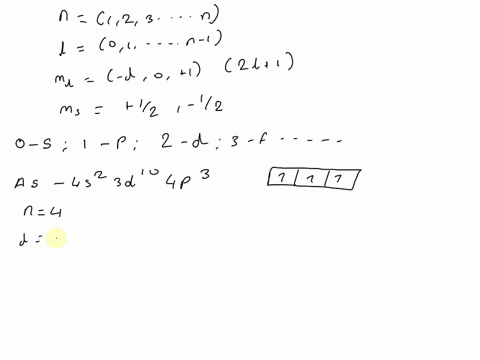 n = (1, 2, 3 ..... n)
l = (0, 1, ..... n-1)
ml = (-l, 0, +1) (2l+1)
ms = +1/2 , -1/2
0-s ; 1-p ; 2-d ; 3-f -----
As - 4s² 3d¹⁰ 4p³ 1 1 1
n = 4
l = .